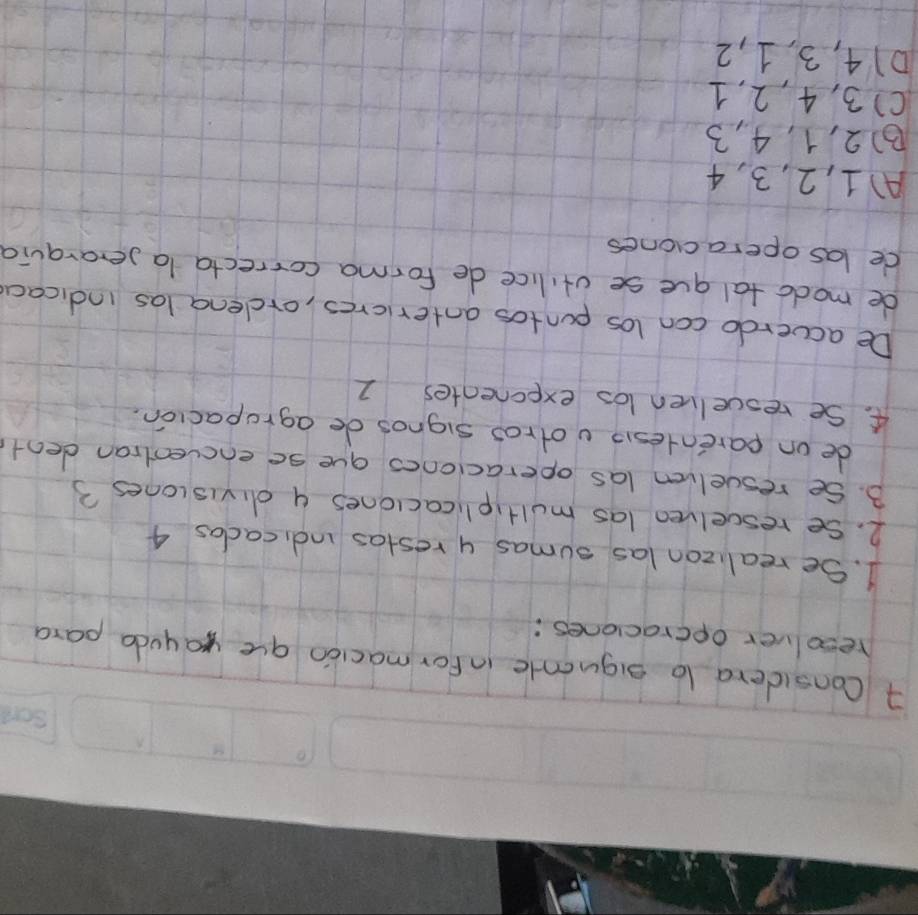 7 Considera la siguiente información que ayuda para
resolver operaciones:
1. Se realizan las sumas y restas indicadas 4
2. Se resuelven las multiplicaciones y divisiones 3
3. Se resuelven las operaciones que se encuentran dent
de un paréntesis u otros signos de agrupación.
4. Se resuelven los exponentes 2
De acuerdo con los puntos anteriores, ordena las indicac
de modo tal que se utilice de forma correcta la jerarquía
de las operaciones
A) 1, 2, 3, 4
B) 2, 1, 4, 3
C) 3, 4, 2, 1
D) 4, 3, 1, 2